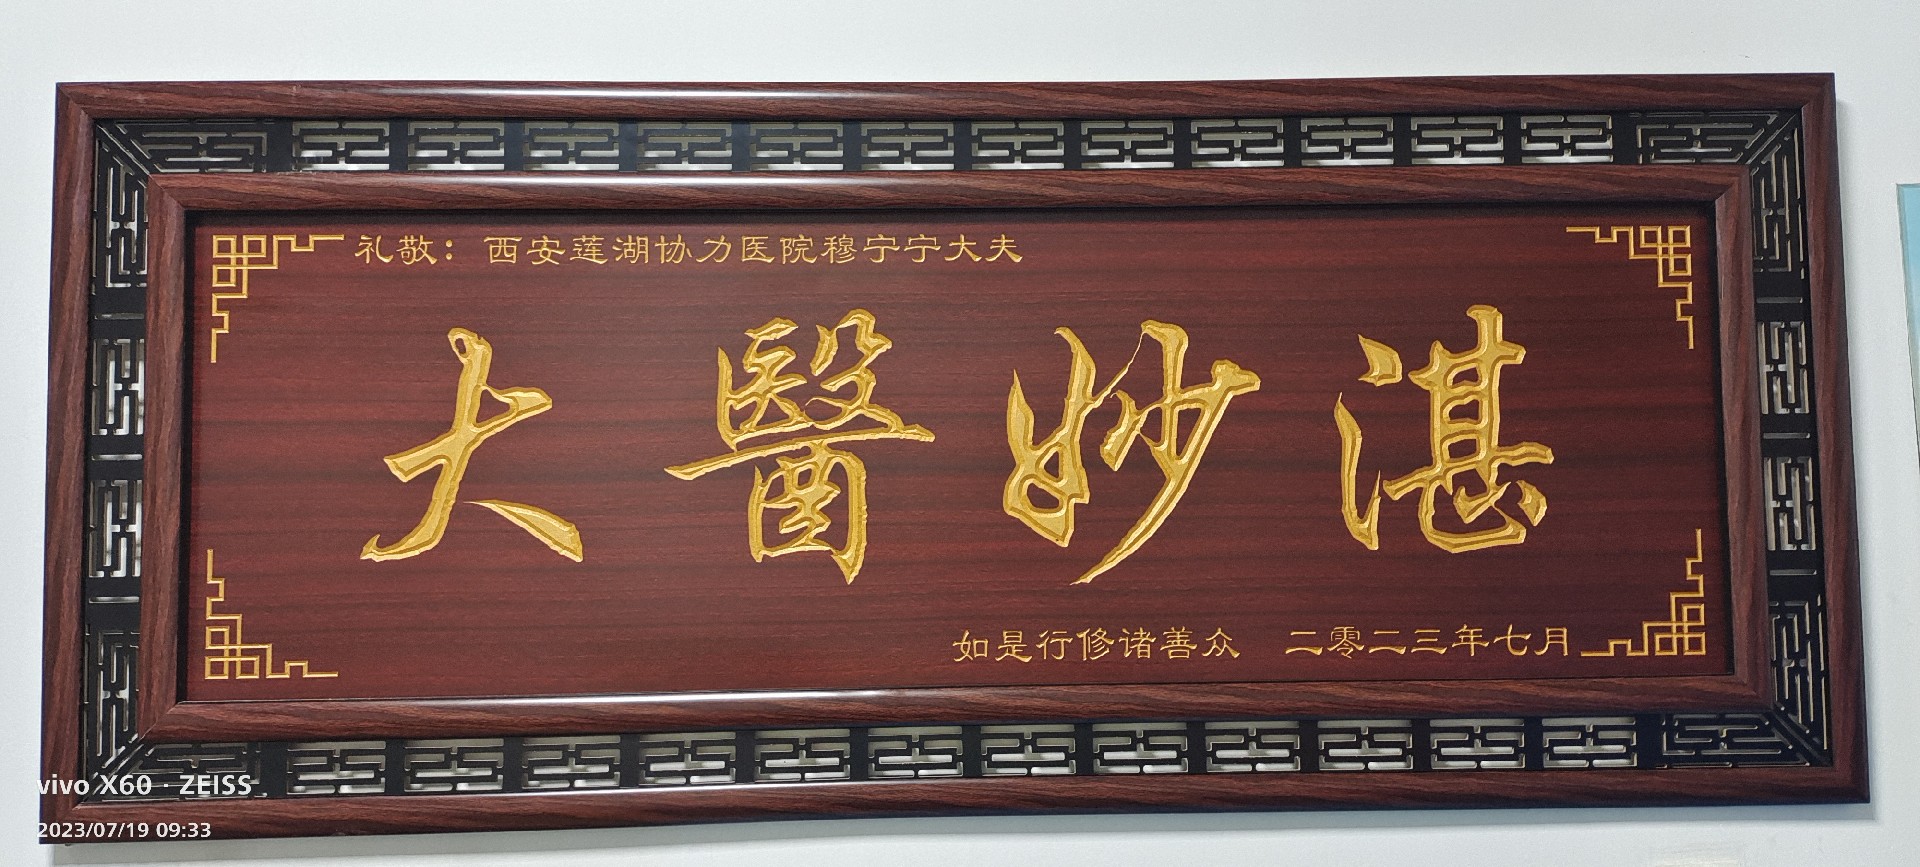 礼敬：西安莲湖协力医院穆宁宁大夫
大醫妙湛
如是行修诸善众 二零二三年七月
vivo X60 · ZEISS
2023/07/19 09:33